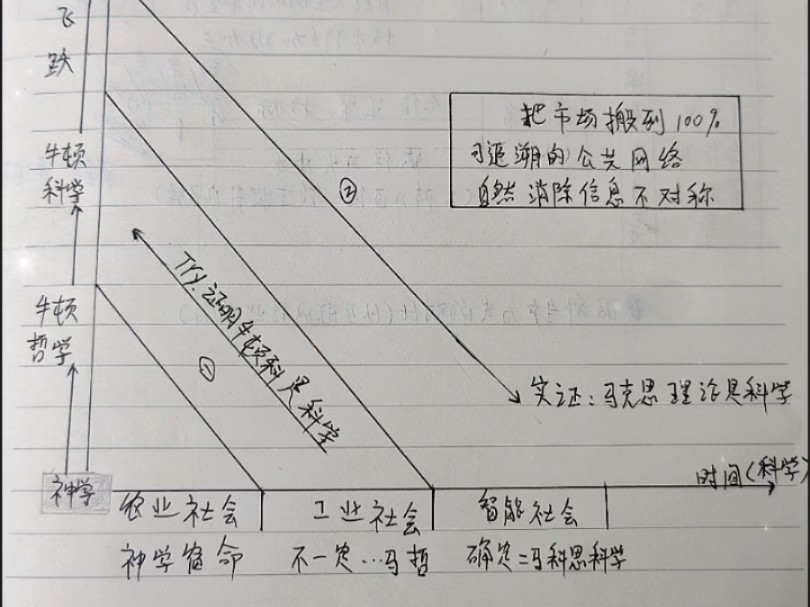 飞
跃
牛顿
科学
牛顿
哲学
神学
把市场搬到100%
可追溯的公共网络
自然消除信息不对称
②
Try:证明牛顿科是科学
①
实证:马克思理论是科学
时间(科学)
农业社会
工业社会
智能社会
神学宿命
不一定…马哲
确定=马科思科学